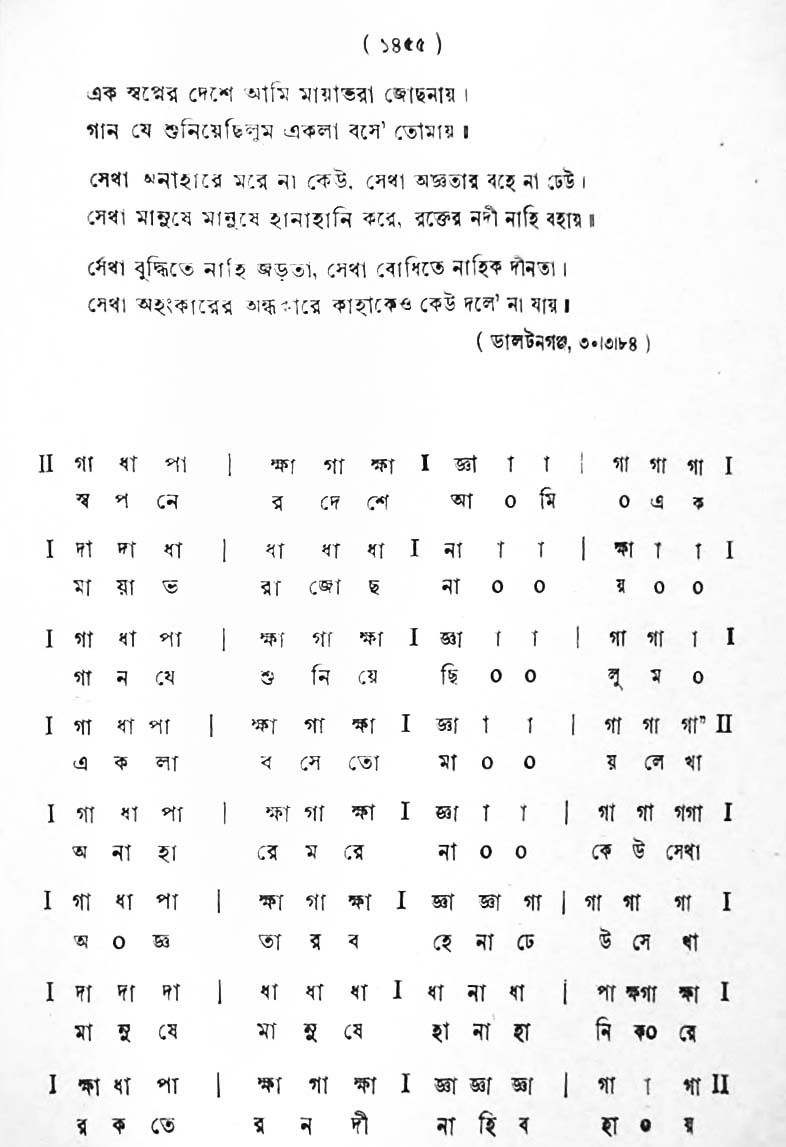 ( ১৪৫৫ )
এক স্বপ্নের দেশে আমি মায়াভরা জোছনায় ।
গান যে শুনিয়েছিলুম একলা বসে' তোমায় ॥
সেথা অনাহারে মরে না কেউ, সেথা অজ্ঞতার বহে না ঢেউ ।
সেথা মানুষে মানুষে হানাহানি করে, রক্তের নদী নাহি বহায় ॥
সেথা বুদ্ধিতে নাহি জড়তা, সেথা বোধিতে নাহিক দীনতা ।
সেথা অহংকারের অন্ধকারে কাহাকেও কেউ দলে' না যায় ॥
( ডালটনগঞ্জ, ৩০।৩।৮৪ )
II গা ধা পা | ক্ষা গা ক্ষা I জ্ঞা া া | গা গা গা I
স্ব প নে র দে শে আ ০ মি ০ এ ক
I দা দা ধা | ধা ধা ধা I না া া | ক্ষা া া I
মা য়া ভ রা জো ছ না ০ ০ য় ০ ০
I গা ধা পা | ক্ষা গা ক্ষা I জ্ঞা া া | গা গা া I
গা ন যে শু নি য়ে ছি ০ ০ লু ম ০
I গা ধা পা | ক্ষা গা ক্ষা I জ্ঞা া া | গা গা গা" II
এ ক লা ব সে তো মা ০ ০ য় লে খা
I গা ধা পা | ক্ষা গা ক্ষা I জ্ঞা া া | গা গা গগা I
অ না হা রে ম রে না ০ ০ কে উ সেথা
I গা ধা পা | ক্ষা গা ক্ষা I জ্ঞা জ্ঞা গা | গা গা গা I
অ ০ জ্ঞ তা র ব হে না ঢে উ সে থা
I দা দা দা | ধা ধা ধা I ধা না ধা | পা ক্ষগা ক্ষা I
মা নু ষে মা নু ষে হা না হা নি ক০ রে
I ক্ষা ধা পা | ক্ষা গা ক্ষা I জ্ঞা জ্ঞা জ্ঞা | গা া গা II
র ক তে র ন দী না হি ব হা ০ য়